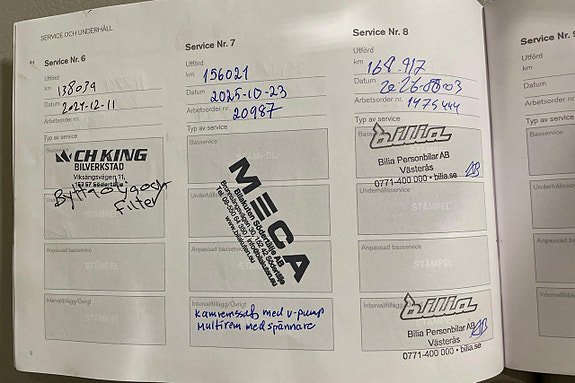 SERVICE OCH UNDERHÅLL
Service Nr. 6
Utförd
km 138039
Datum 2024-12-11
Arbetsorder nr.
Typ av service
Basservice
CH KING
BILVERKSTAD
Viksängsvägen 11,
Södertälje
Filter
Underhållsservice
Anpassad basservice
STÄMPEL
Intervalltillägg/Övrigt
STÄMPEL
Service Nr. 7
Utförd
km 156021
Datum 2025-10-23
Arbetsorder nr. 20987
Typ av service
Basservice
STÄMPEL
MECA
Bilakuten Södertälje AB
152 42 Södertälje
Anpassad basservice
Intervalltillägg/Övrigt
Kamremssats med v-pump
Multirem med spännare
Service Nr. 8
Utförd
km 168.917
Datum
Arbetsorder nr. 1475444
Typ av service
bilia
Bilia Personbilar AB
Västerås
0771-400 000 • bilia.se
Underhållsservice
STÄMPEL
Anpassad basservice
STÄMPEL
Intervalltillägg
bilia
Bilia Personbilar AB
Västerås
0771-400 000 • bilia.se
Service Nr. 9
Utförd
km
Datum
Arbetsorder nr.
Typ av service
Basservice
Underhållsservice
Anpassad
Intervalltillägg
8